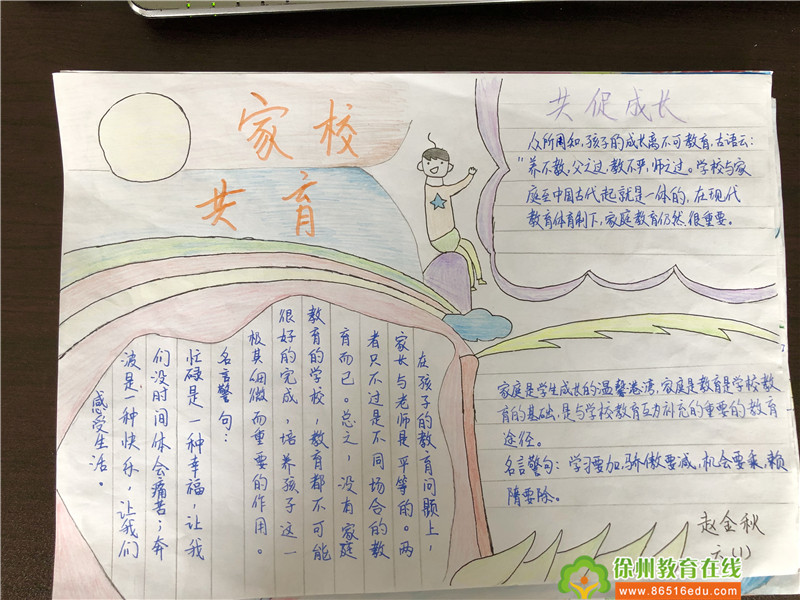 家校
共育
共促成长
众所周知，孩子的成长离不可教育，古语云：
“养不教，父之过，教不严，师之过。学校与家
庭至中国古代起就是一体的，在现代
教育体育制下，家庭教育仍然很重要。
在孩子的教育问题上，
家长与老师是平等的。两
者只不过是不同场合的教
育而已。总之，没有家庭
教育的学校，教育都不可能
很好的完成，培养孩子这一
极其细微而重要的作用。
名言警句：
忙碌是一种幸福，让我
们没时间体会痛苦；奔
波是一种快乐，让我们
感受生活。
家庭是学生成长的温馨港湾，家庭是教育是学校教
育的基础，是与学校教育互为补充的重要的教育
途径。
名言警句：学习要加，骄傲要减，机会要乘，赖
隋要除。
赵金秋
六(1)
徐州教育在线
www.86516edu.com